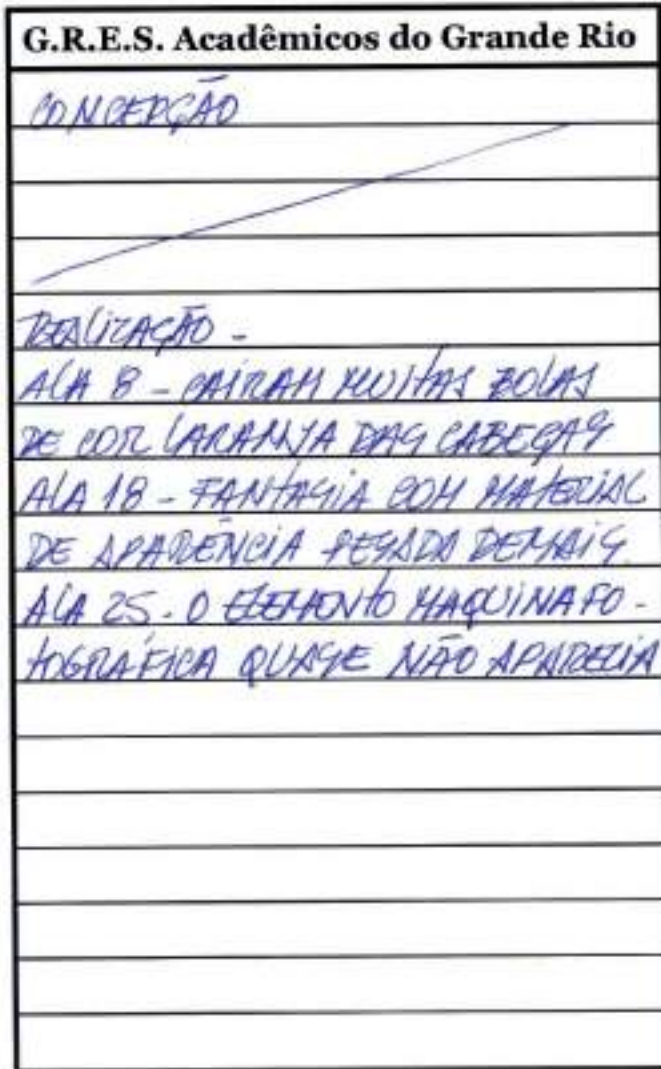 G.R.E.S. Acadêmicos do Grande Rio
CONCEPÇÃO
REALIZAÇÃO -
ALA 8 - CAÍRAM MUITAS BOLAS
DE COR LARANJA DAS CABEÇAS
ALA 18 - FANTASIA COM MATERIAL
DE APARÊNCIA PESADA DEMAIS.
ALA 25 - O ELEMENTO MAQUINA FO-
TOGRÁFICA QUASE NÃO APARECIA